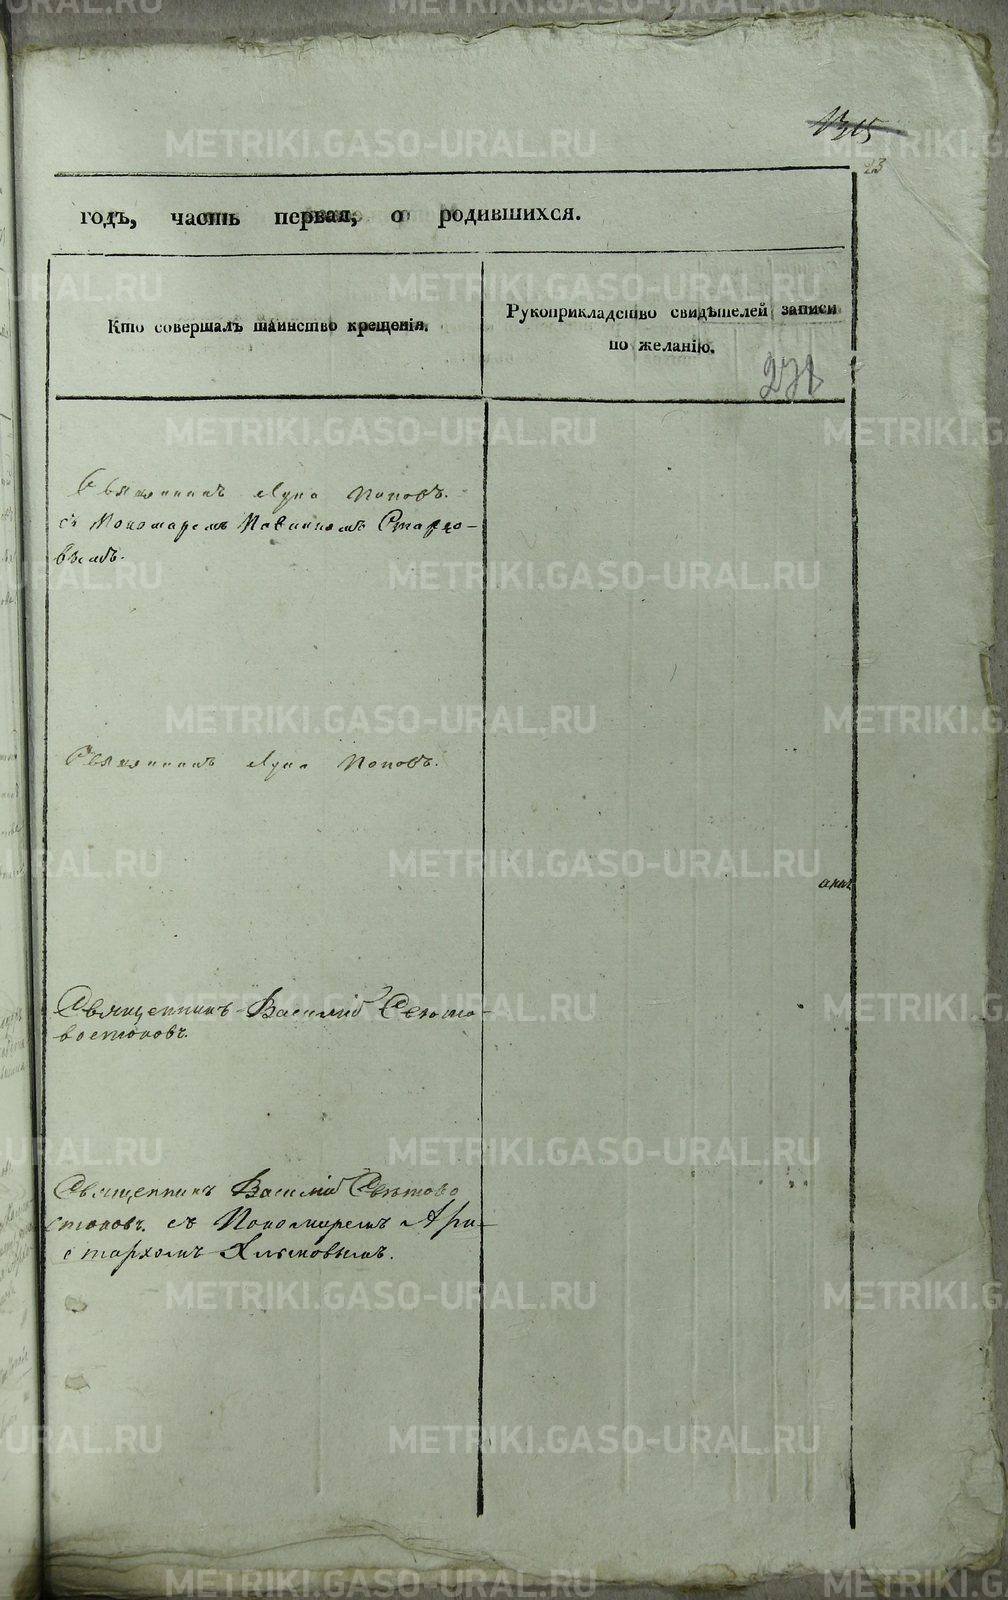 1315
23
годъ, часть первая, о родившихся.
Кто совершалъ таинство крещенія.
Рукоприкладство свидѣтелей записи
по желанію.
271
Священникъ Лука Поповъ.
съ Пономаремъ Старцо-
вымъ.
Священникъ Лука Поповъ.
Священникъ Василій Свѣто-
востоковъ.
Священникъ Василій Свѣтово
стоковъ. съ Пономаремъ Ари-
стархомъ Хлыновымъ.
METRIKI.GASO-URAL.RU